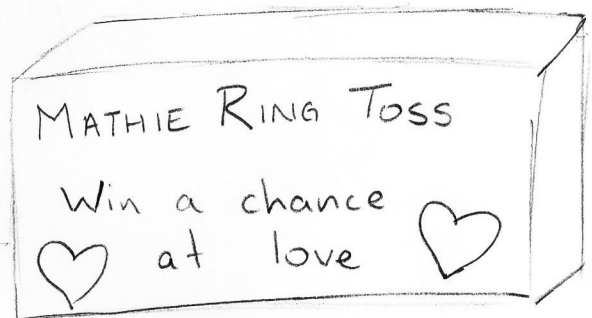 MATHIE RING TOSS
Win a chance
at love